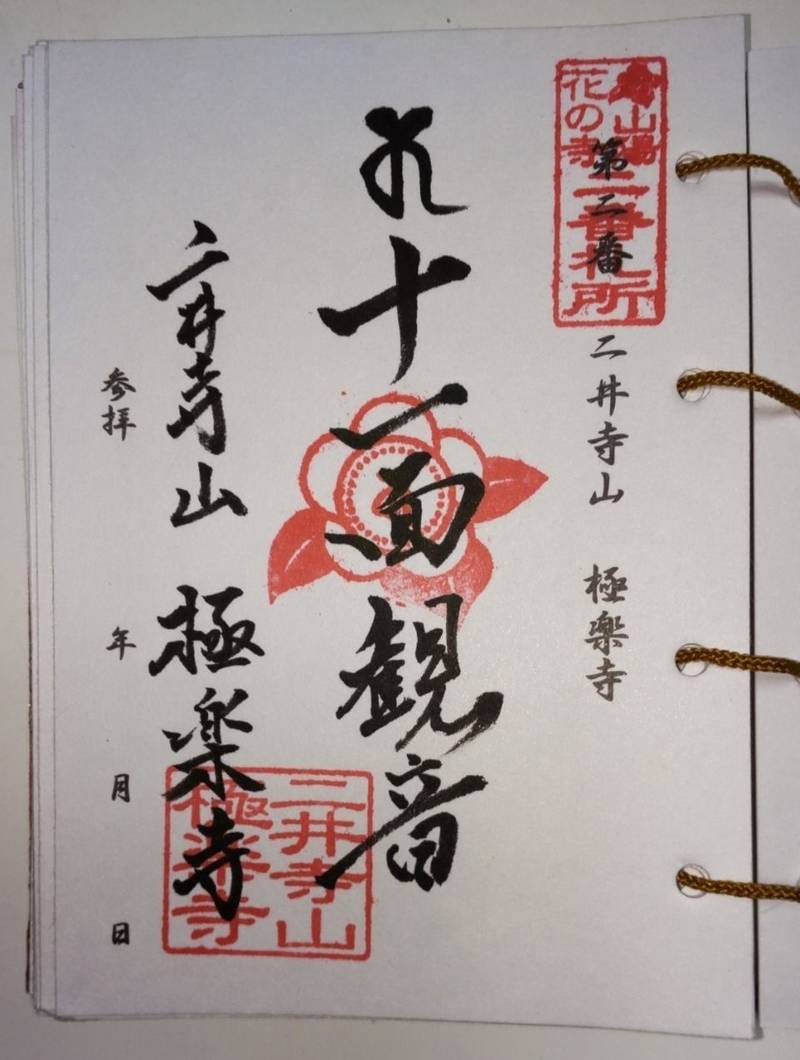 山陽
花の寺
二番札所
第二番
二井寺山 極楽寺
十一面観音
二井寺山 極楽寺
二井寺山
極楽寺
参拝 年 月 日